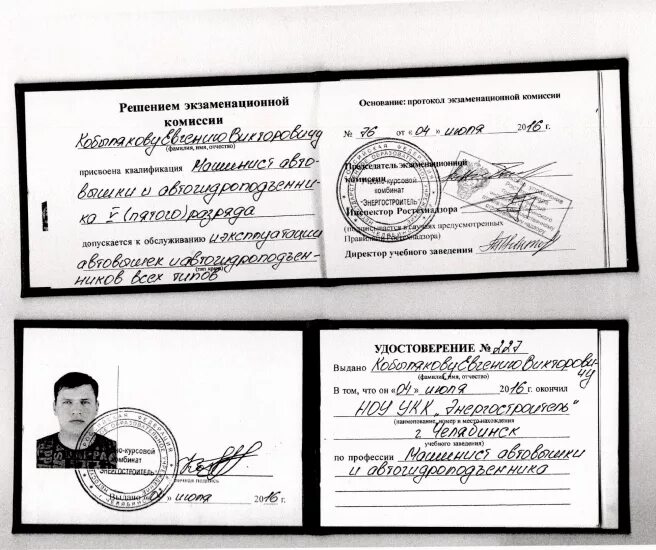 Решением экзаменационной
комиссии
Кобыпякову Евгению Викторовичу
(фамилия, имя, отчество)
присвоена квалификация Машинист авто-
вышки и автогидроподъемни-
ка V (пятого) разряда
допускается к обслуживанию и эксплуатации
автовышек и автогидроподъем-
(тип крана)
ников всех типов
Основание: протокол экзаменационной комиссии
№ 76 от «04» июля 2016 г.
Председатель экзаменационной
комиссии
Инспектор Ростехнадзора
(подписывается в случаях предусмотренных
Правилами Ростехнадзора)
Директор учебного заведения
Учебно-курсовой
комбинат
"ЭНЕРГОСТРОИТЕЛЬ"
но-курсовой
комбинат
ЭНЕРГОСТРОИТЕЛЬ"
личная подпись
Выдано «04» июля 2016 г.
УДОСТОВЕРЕНИЕ № 227
Выдано Кобыпякову Евгению Викторовичу
(фамилия, имя, отчество)
В том, что он «04» июля 2016 г. окончил
НОУ УКК „Энергостроитель"
(наименование, номер и место нахождения
г. Челябинск
учебного заведения)
по профессии Машинист автовышки
и автогидроподъемника